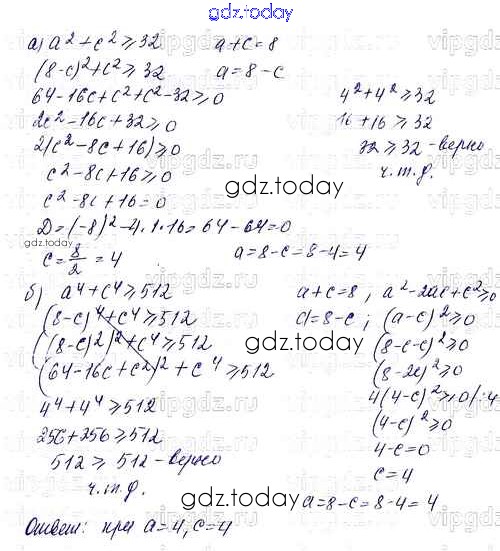 gdz.today
а) a² + c² ≥ 32   a+c=8
(8-c)²+c² ≥ 32   a=8-c
64-16c+c²+c²-32 ≥ 0   4²+4² ≥ 32
2c²-16c+32 ≥ 0   16+16 ≥ 32
2(c²-8c+16) ≥ 0   32 ≥ 32 - верно
c²-8c+16 ≥ 0   ч.т.д.
gdz.today
c²-8c+16=0
D=(-8)²-4·1·16=64-64=0
c=8/2=4   a=8-c=8-4=4
б) a⁴+c⁴ ≥ 512   a+c=8, a²-2ac+c² ≥ 0
(8-c)⁴+c⁴ ≥ 512   a=8-c; (a-c)² ≥ 0
((8-c)²)²+c⁴ ≥ 512   (8-c-c)² ≥ 0
gdz.today
(64-16c+c²)²+c⁴ ≥ 512   (8-2c)² ≥ 0
4⁴+4⁴ ≥ 512   4(4-c)² ≥ 0 |:4
256+256 ≥ 512   (4-c)² ≥ 0
512 ≥ 512 - верно   4-c=0
ч.т.д.   c=4
gdz.today
a=8-c=8-4=4
Ответ: при a=4, c=4